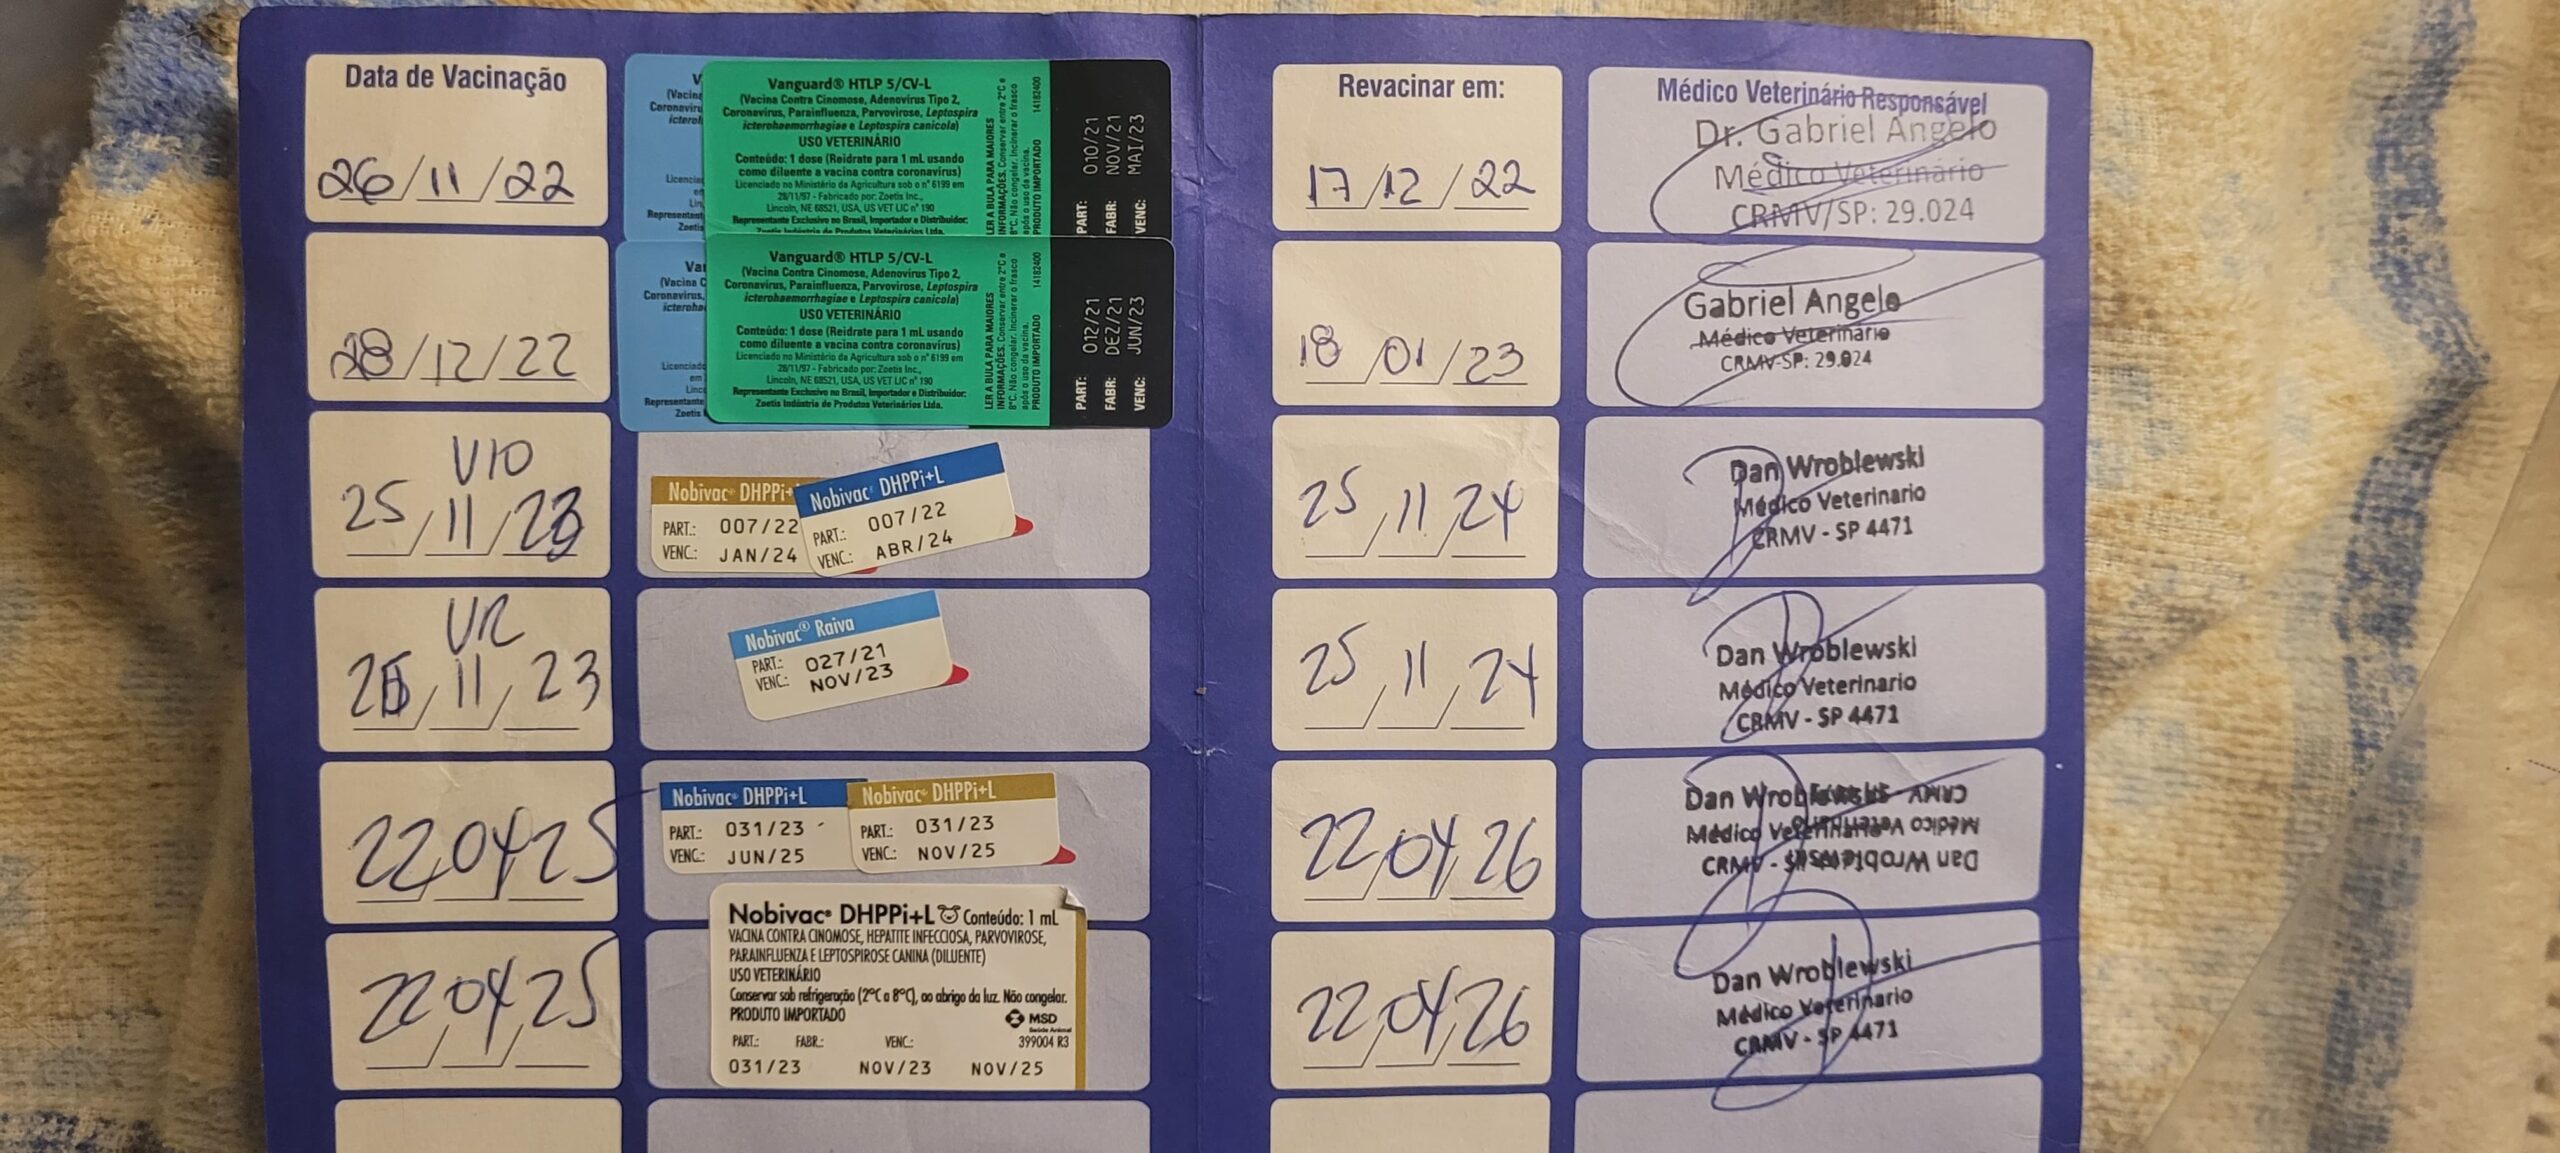 Data de Vacinação
Revacinar em:
Médico Veterinário Responsável
26/11/22
Vanguard® HTLP 5/CV-L
(Vacina Contra Cinomose, Adenovírus Tipo 2,
Coronavírus, Parainfluenza, Parvovirose, Leptospira
icterohaemorrhagiae e Leptospira canicola)
USO VETERINÁRIO
Conteúdo: 1 dose (Reidrate para 1 mL usando
como diluente a vacina contra coronavírus)
Licenciado no Ministério da Agricultura sob o nº 6199 em
28/11/97 - Fabricado por: Zoetis Inc.,
Lincoln, NE 68521, USA, US VET LIC nº 190
Representante Exclusivo no Brasil, Importador e Distribuidor:
Zoetis Indústria de Produtos Veterinários Ltda.
LER A BULA PARA MAIORES
INFORMAÇÕES. Conservar entre 2°C e
8°C. Não congelar. Incinerar o frasco
após o uso da vacina.
PRODUTO IMPORTADO 14182400
PART: 010/21
FABR: NOV/21
VENC: MAI/23
17/12/22
Dr. Gabriel Angelo
Médico Veterinário
CRMV/SP: 29.024
28/12/22
Vanguard® HTLP 5/CV-L
(Vacina Contra Cinomose, Adenovírus Tipo 2,
Coronavírus, Parainfluenza, Parvovirose, Leptospira
icterohaemorrhagiae e Leptospira canicola)
USO VETERINÁRIO
Conteúdo: 1 dose (Reidrate para 1 mL usando
como diluente a vacina contra coronavírus)
Licenciado no Ministério da Agricultura sob o nº 6199 em
28/11/97 - Fabricado por: Zoetis Inc.,
Lincoln, NE 68521, USA, US VET LIC nº 190
Representante Exclusivo no Brasil, Importador e Distribuidor:
Zoetis Indústria de Produtos Veterinários Ltda.
LER A BULA PARA MAIORES
INFORMAÇÕES. Conservar entre 2°C e
8°C. Não congelar. Incinerar o frasco
após o uso da vacina.
PRODUTO IMPORTADO 14182400
PART: 012/21
FABR: DEZ/21
VENC: JUN/23
18/01/23
Gabriel Angelo
Médico Veterinário
CRMV-SP: 29.024
V10
25/11/23
Nobivac® DHPPi+
PART.: 007/22
VENC.: JAN/24
Nobivac® DHPPi+L
PART.: 007/22
VENC.: ABR/24
25/11/24
Dan Wroblewski
Médico Veterinario
CRMV - SP 4471
VR
25/11/23
Nobivac® Raiva
PART.: 027/21
VENC.: NOV/23
25/11/24
Dan Wroblewski
Médico Veterinario
CRMV - SP 4471
22/04/25
Nobivac® DHPPi+L
PART.: 031/23
VENC.: JUN/25
Nobivac® DHPPi+L
PART.: 031/23
VENC.: NOV/25
22/04/26
Dan Wroblewski
Médico Veterinario
22/04/25
Nobivac® DHPPi+L Conteúdo: 1 mL
VACINA CONTRA CINOMOSE, HEPATITE INFECCIOSA, PARVOVIROSE,
PARAINFLUENZA E LEPTOSPIROSE CANINA (DILUENTE)
USO VETERINÁRIO
Conservar sob refrigeração (2°C a 8°C), ao abrigo da luz. Não congelar.
PRODUTO IMPORTADO
MSD
Saúde Animal
399004 R3
PART.: FABR.: VENC.:
031/23 NOV/23 NOV/25
22/04/26
Dan Wroblewski
Médico Veterinario
CRMV - SP 4471